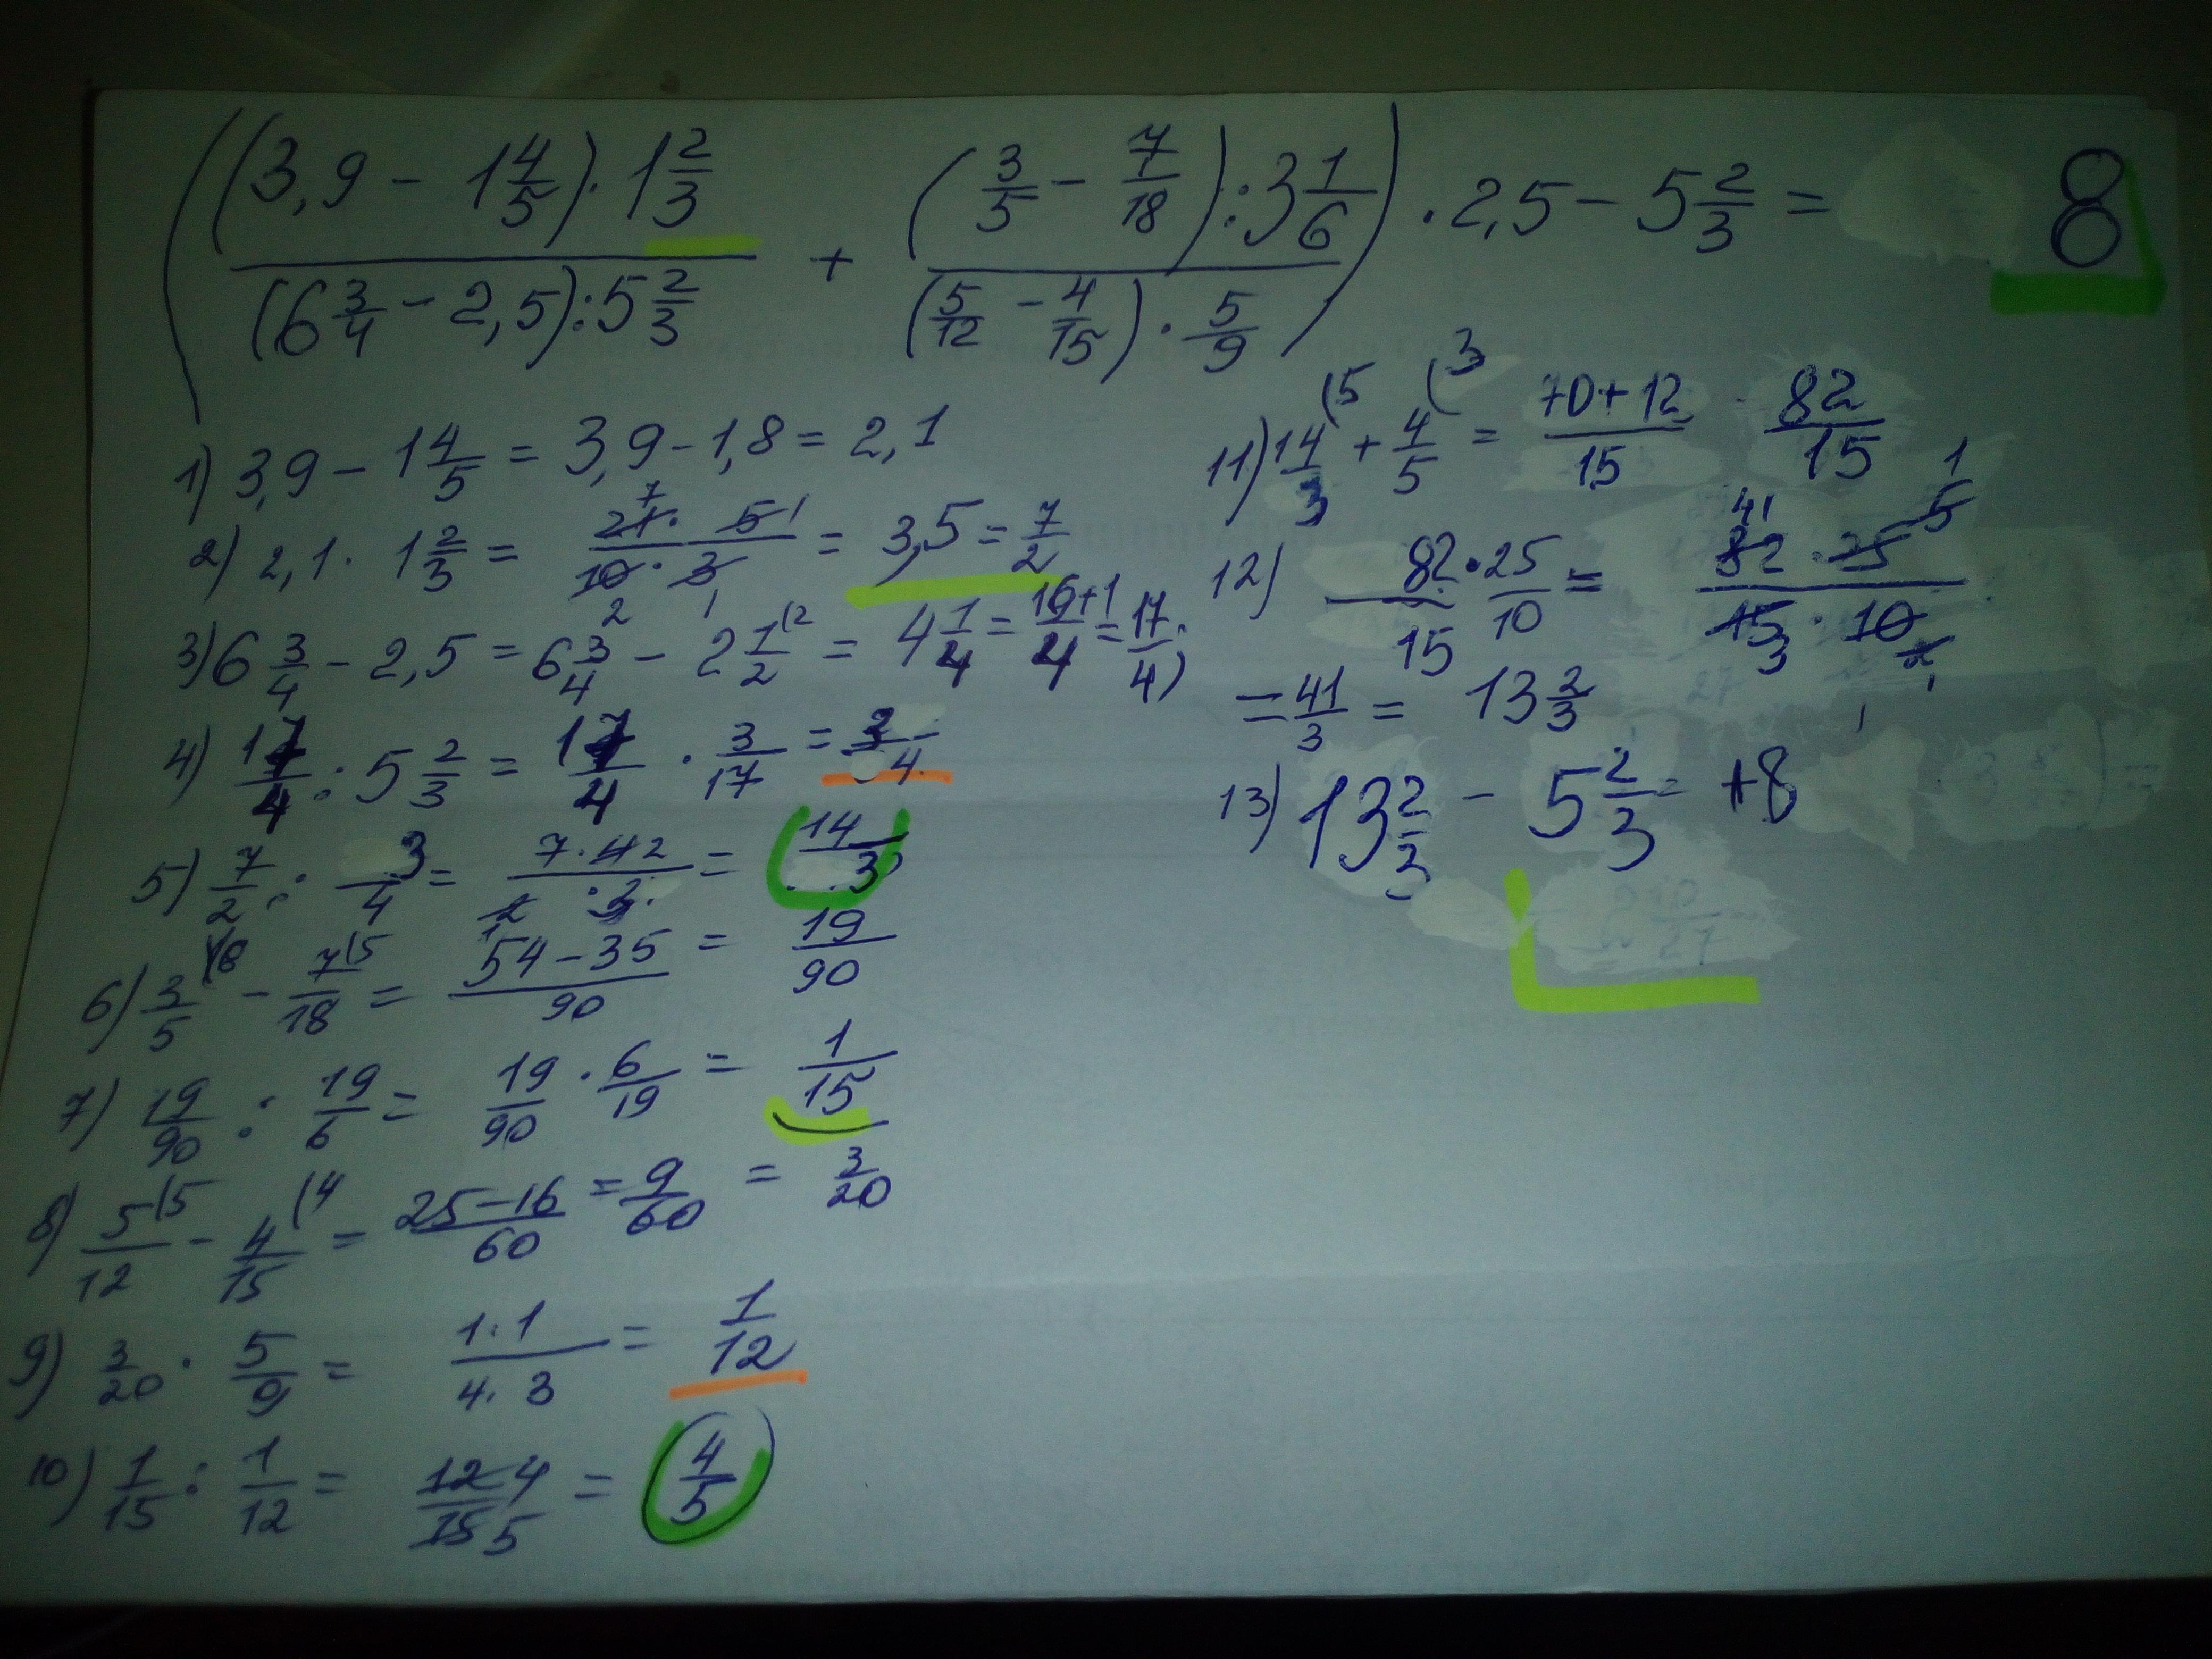 (((3,9 − 1 4/5) · 1 2/3) / ((6 3/4 − 2,5) : 5 2/3) + ((3/5 − 7/18) : 3 1/6) / ((5/12 − 4/15) · 5/9)) · 2,5 − 5 2/3 = 8
1) 3,9 − 1 4/5 = 3,9 − 1,8 = 2,1
2) 2,1 · 1 2/3 = 21 7 · 5 1 / 10 2 · 3 1 = 3,5 = 7/2
3) 6 3/4 − 2,5 = 6 3/4 − 2 1/2 (2 = 4 1/4 = 16+1/4 = 17/4)
4) 17/4 : 5 2/3 = 17/4 · 3/17 = 3/4
5) 7/2 : 3/4 = 7 · 4 2 / 2 1 · 3 = 14/3
6) 3/5 (18 − 7/18 (5 = 54 − 35/90 = 19/90
7) 19/90 : 19/6 = 19/90 · 6/19 = 1/15
8) 5/12 (5 − 4/15 (4 = 25 − 16/60 = 9/60 = 3/20
9) 3/20 · 5/9 = 1 · 1/4 · 3 = 1/12
10) 1/15 : 1/12 = 12 4/15 5 = 4/5
11) 14/3 (5 + 4/5 (3 = 70 + 12/15 82/15
12) 82/15 · 25/10 = 82 41 · 25 5 1 / 15 3 · 10 2 1
= 41/3 = 13 2/3
13) 13 2/3 − 5 2/3 = +8